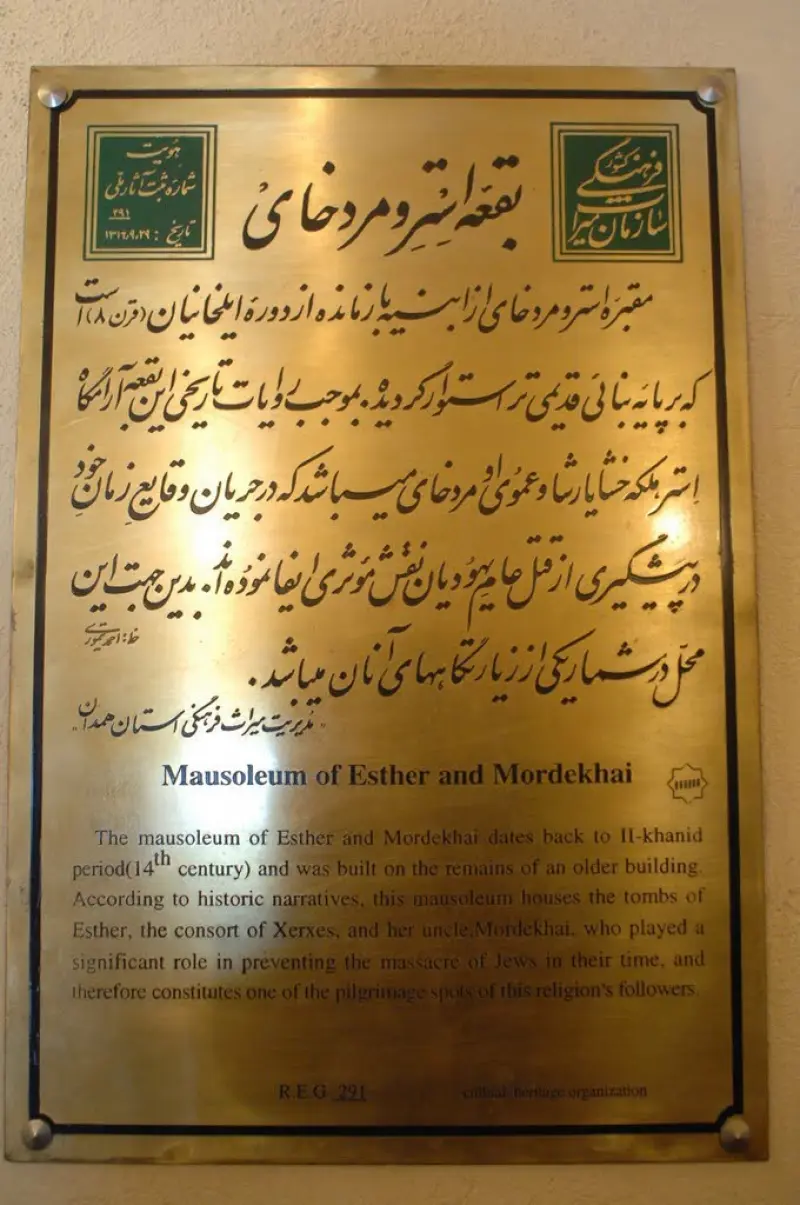 هویت
شمارهٔ ثبت آثار ملی
۲۹۱
تاریخ : ۱۳۱۶/۹/۲۹
سازمان میراث فرهنگی کشور
بقعه اِستِر و مردخای
مقبرهٔ استر و مردخای از ابنیه بازمانده از دورهٔ ایلخانیان (قرن ۸) است
که بر پایه بنائی قدیمی تر استوار گردیده. بموجب روایات تاریخی این بقعه آرامگاه
اِستر ملکه خشایارشا و عموی او مردخای میباشد که در جریان وقایع زمان خود
در پیشگیری از قتل عام یهودیان نقش مؤثری ایفا نموده‌اند. بدین جهت این
خط: احمد تیموری
محلّ در شمار یکی از زیارتگاههای آنان میباشد.
"مدیریت میراث فرهنگی استان همدان"
Mausoleum of Esther and Mordekhai
The mausoleum of Esther and Mordekhai dates back to Il-khanid
period(14th century) and was built on the remains of an older building.
According to historic narratives, this mausoleum houses the tombs of
Esther, the consort of Xerxes, and her uncle,Mordekhai, who played a
significant role in preventing the massacre of Jews in their time, and
therefore constitutes one of the pilgrimage spots of this religion's followers.
R.E.G 291 cultural heritage organization